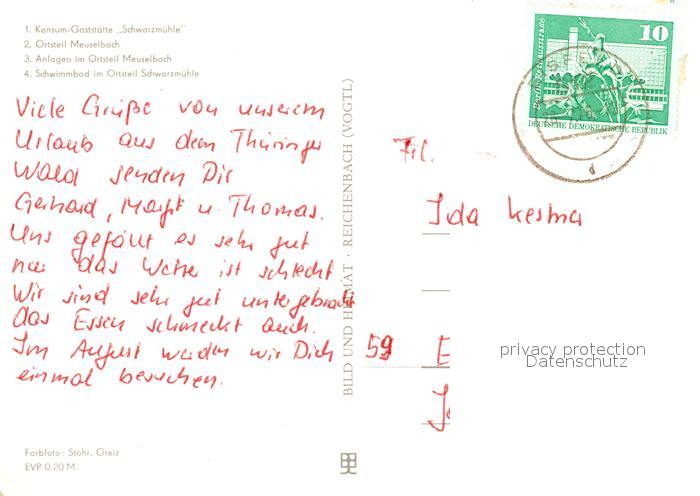 1. Konsum-Gaststätte „Schwarzmühle"
2. Ortsteil Meuselbach
3. Anlagen im Ortsteil Meuselbach
4. Schwimmbad im Ortsteil Schwarzmühle
Viele Grüße von unserem
Urlaub aus dem Thüringer
Wald senden Dir
Gerhard, Margit u. Thomas.
Uns gefällt es sehr gut
nur das Wetter ist schlecht
Wir sind sehr gut untergebracht
das Essen schmeckt auch.
Im August werden wir Dich
einmal besuchen.
Farbfoto: Stöhr, Greiz
EVP 0.20 M
BILD UND HEIMAT · REICHENBACH (VOGTL)
10
Berlin, Rathausstraße
DEUTSCHE DEMOKRATISCHE REPUBLIK
Frl.
Ida
59 E
privacy protection
Datenschutz